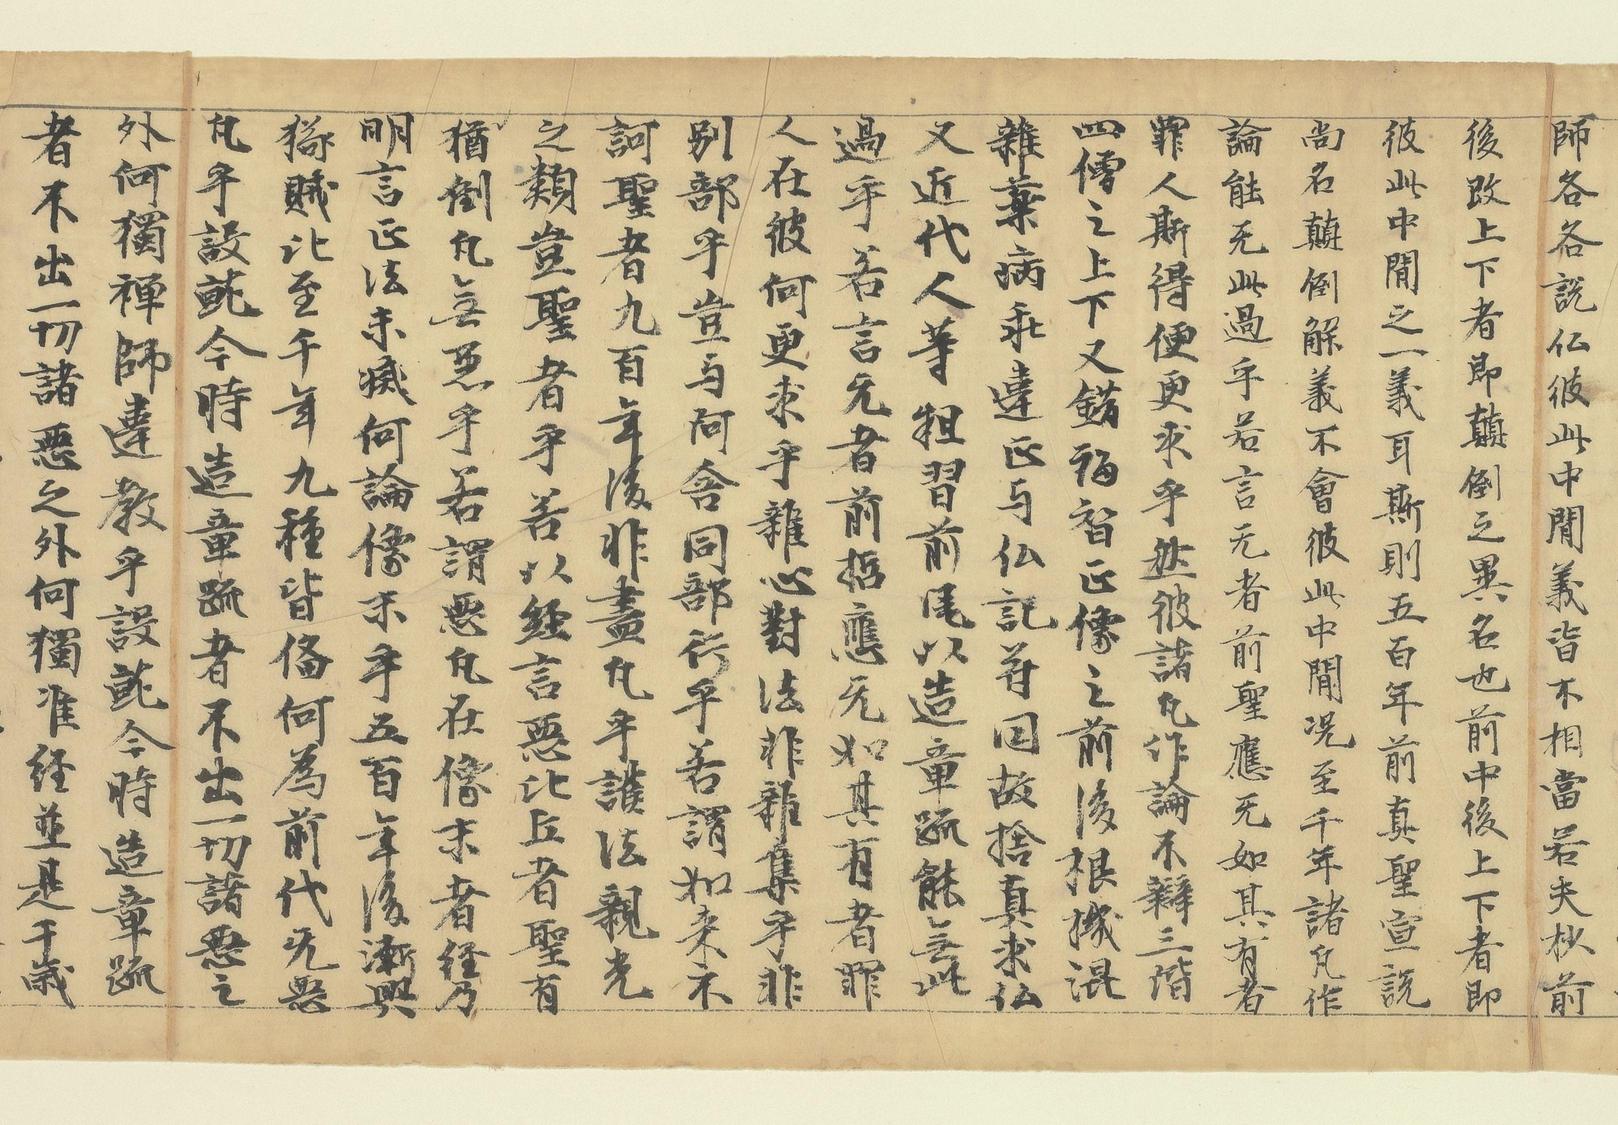 師各各説仏彼此中間義皆不相當若夫秋前
後改上下者即顛倒之異名也前中後上下者即
彼此中間之一義耳斯則五百年前真聖宣説
尚名顛倒解義不會彼此中間况至千年諸凡作
論能无此過乎若言无者前聖應无如其有者
罪人斯得便更求乎然彼諸凡作論不辯三階
四儈之上下又錯福智正像之前後根機混
雜藥病乖違正与仏記苻同故捨真求仏
又近代人等狃習前尾以造章疏能無此
過乎若言无者前哲應无如其有者罪
人在彼何更求乎雜心對法非雜集乎非
别部乎豈与阿含同部行乎若謂如来不
訶聖者九百年後非盡凡乎護法親光
之類豈聖者乎若以經言惡比丘者聖有
猶倒凡無惡乎若謂惡凡在像末者經乃
明言正法未滅何論像末乎五百年後漸興
猕賊比至千年九種皆俻何為前代无惡
凡乎設毓今時造章疏者不出一切諸惡之
外何獨禅師違教乎設毓今時造章疏
者不出一切諸惡之外何獨准経並是千歳